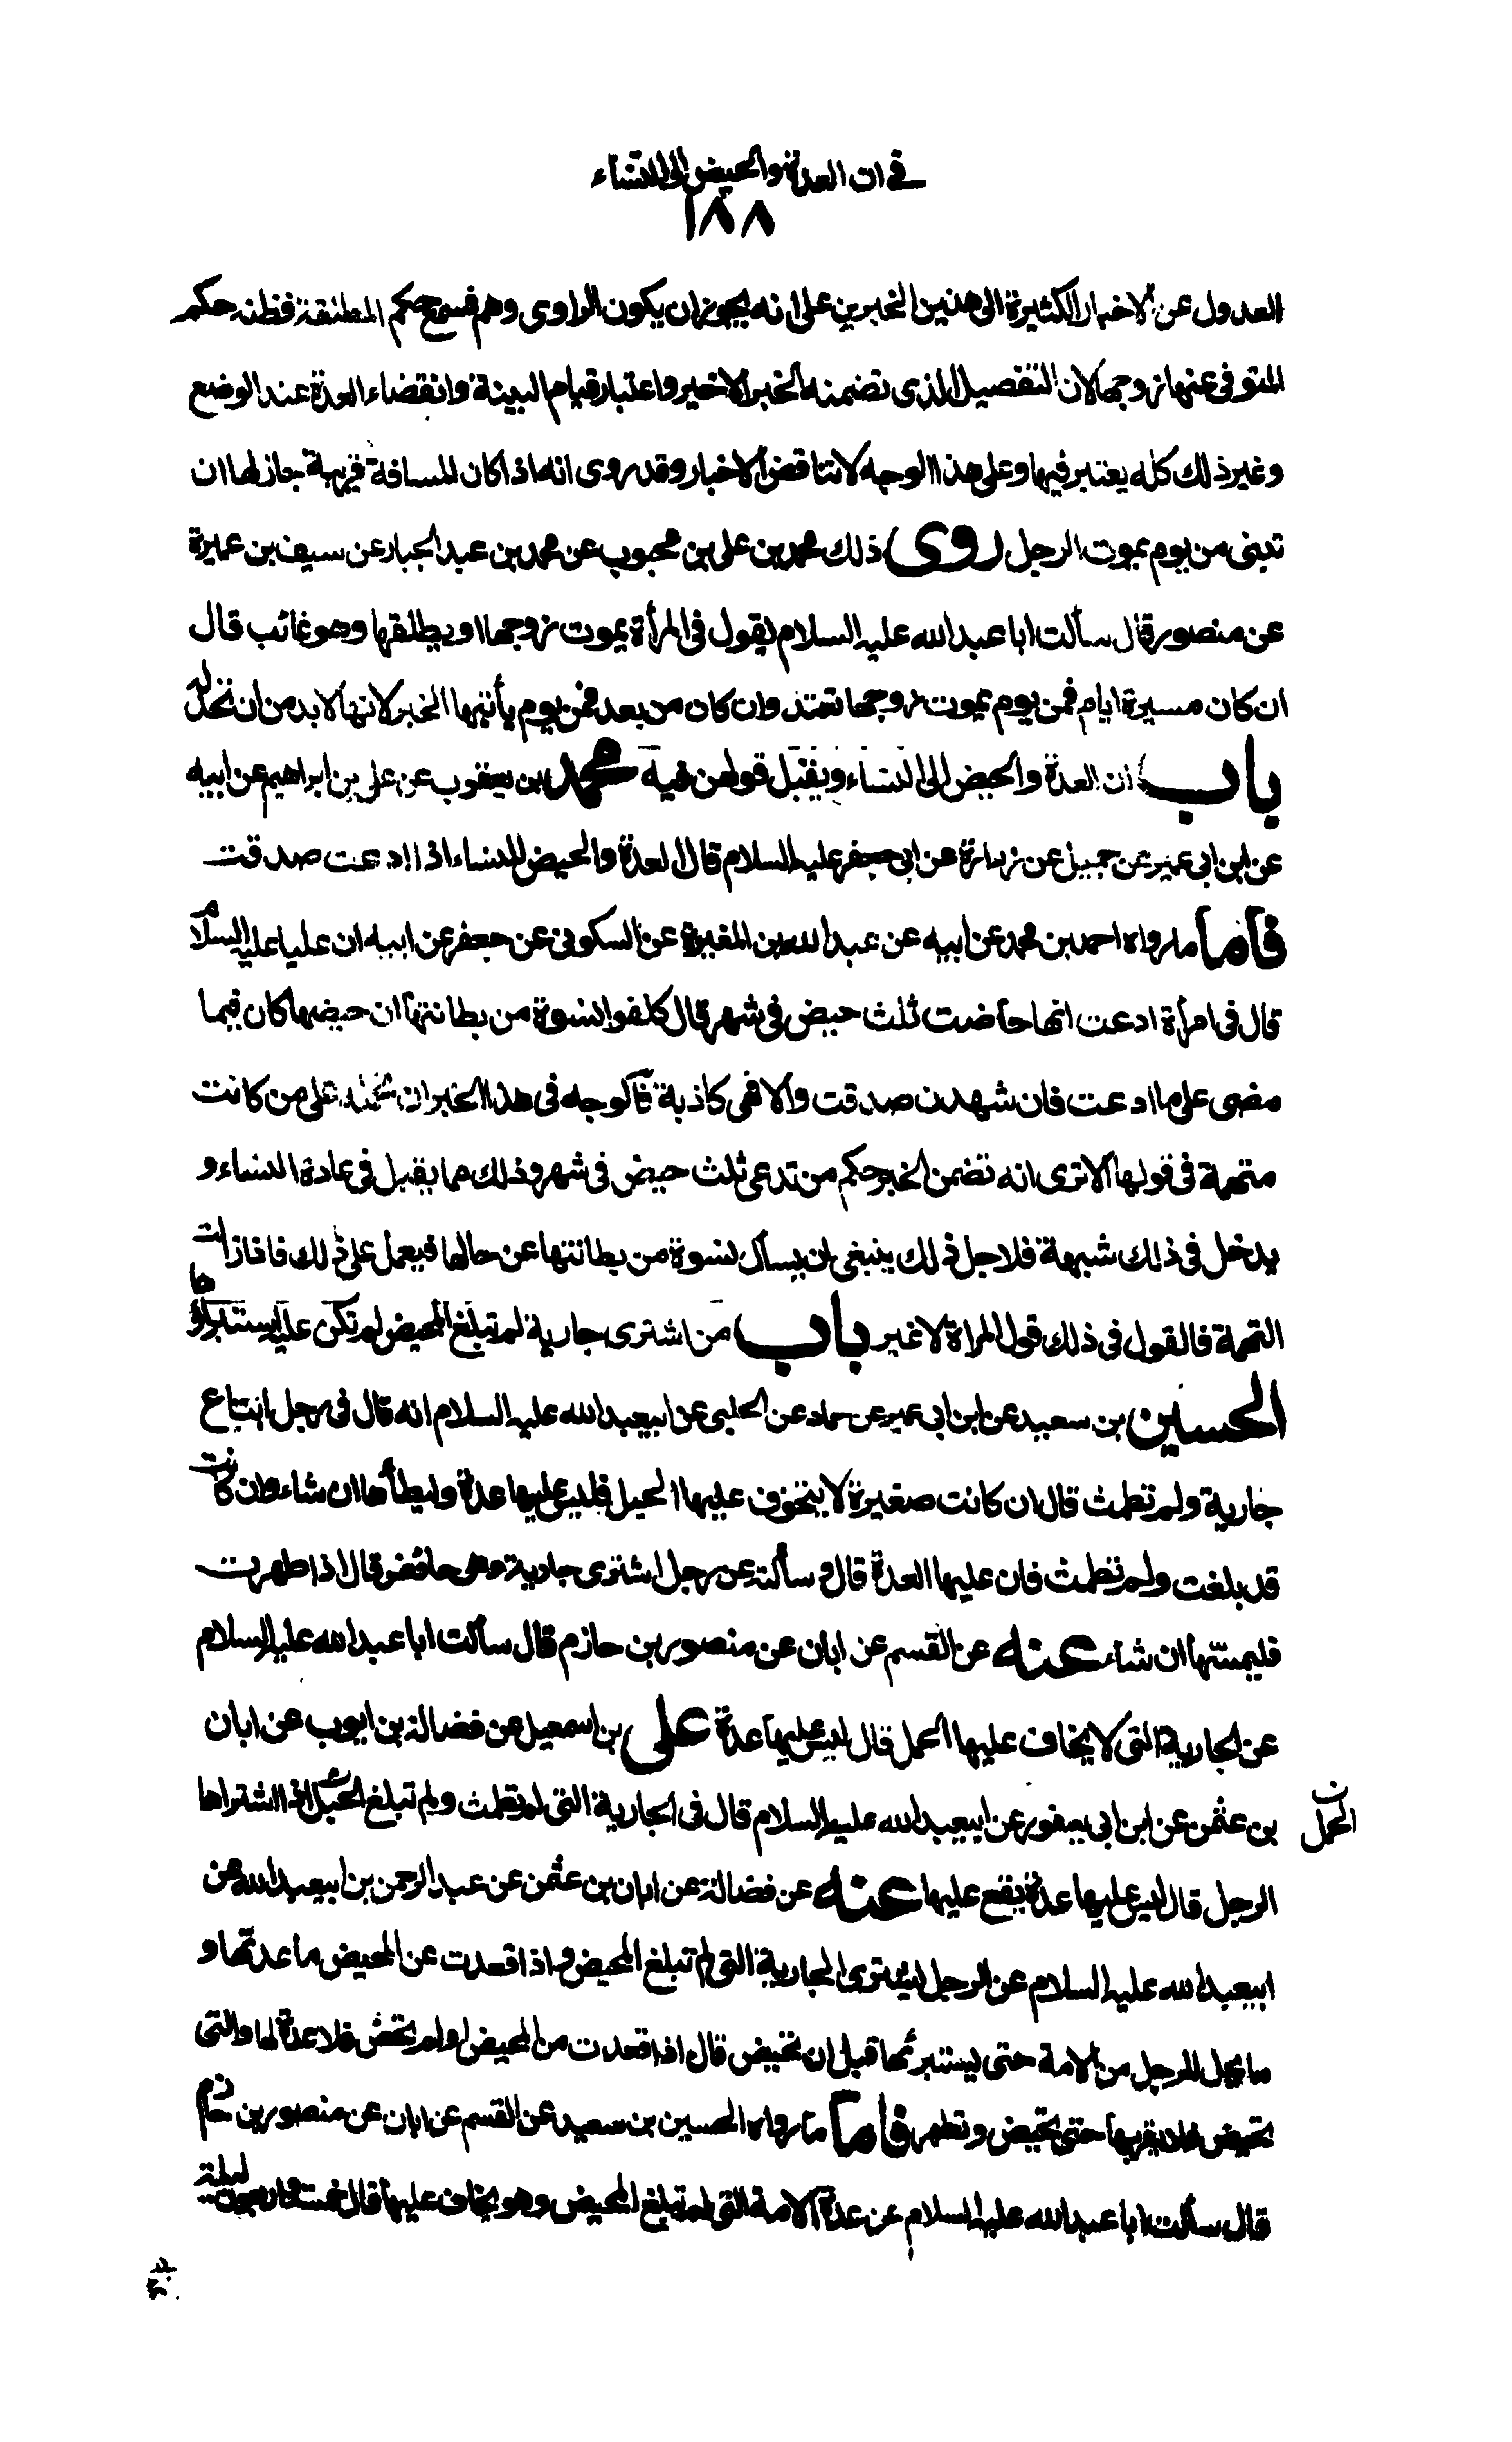 في ان العدة والحيض الى النساء
١٨٨
العدول عن الاخبار الكثيرة الى هذين الخبرين على انه يجوز ان يكون الراوى وهم فسمع حكم المطلقة فظنه حكم
المتوفى عنها زوجها لان التفصيل الذى تضمنه الخبر الاخير واعتبار قيام البينة وانقضاء العدة عند الوضع
وغير ذلك كله يعتبر فيها وعلى هذا الوجه لا تتناقض الاخبار وقد روى انه اذا كان المسافة قريبة جاز لها ان
تبنى من يوم يموت الرجل روى ذلك محمد بن على بن محبوب عن محمد بن عبد الجبار عن سيف بن عميرة
عن منصور قال سألت ابا عبد الله عليه السلام يقول فى المرأة يموت زوجها او يطلقها وهو غائب قال
ان كان مسيرة ايام فمن يوم يموت زوجها تعتد وان كان من بعد فمن يوم يأتيها الخبر لانها لا بد من ان تحد له
باب ان العدة والحيض الى النساء ويقبل قولهن فيه محمد بن يعقوب عن على بن ابراهيم عن ابيه
عن ابن ابى عمير عن جميل عن زرارة عن ابى جعفر عليه السلام قال العدة والحيض للنساء اذا ادعت صدقت
فاما ما رواه احمد بن محمد عن ابيه عن عبد الله بن المغيرة عن السكونى عن جعفر عن ابيه ان عليا عليه السلام
قال فى امرأة ادعت انها حاضت ثلث حيض فى شهر قال كلفوا نسوة من بطانتها ان حيضها كان فيما
مضى على ما ادعت فان شهدن صدقت والا فهى كاذبة فالوجه فى هذا الخبر ان على من كانت
متهمة فى قولها الا ترى انه تضمن الخبر حكم من تدعى ثلث حيض فى شهر وذلك مما يقبل فى عادة النساء و
يدخل فى ذلك شبهة فلاجل ذلك ينبغى ان يسأل نسوة من بطانتها عن حالها فيعمل على ذلك فاذا زالت
التهمة فالقول فى ذلك قول المراة لا غير باب من اشترى جارية لم تبلغ المحيض لم تكن عليه استبراؤها
الحسين بن سعيد عن ابن ابى عمير عن حماد عن الحلبى عن ابيعبد الله عليه السلام انه قال فى رجل ابتاع
جارية ولم تطمث قال ان كانت صغيرة لا يتخوف عليها الحبل فليس عليها عدة وليطأها ان شاء وان كانت
قد بلغت ولم تطمث فان عليها العدة قال وسألته عن رجل اشترى جارية وهى حائض قال اذا طهرت
فليمسّها ان شاء عنه عن القسم عن ابان عن منصور بن حازم قال سألت ابا عبد الله عليه السلام
عن الجارية التى لا يخاف عليها الحمل قال ليس عليها عدة على بن اسمعيل عن فضالة بن ايوب عن ابان
بن عثمن عن ابن ابى يعفور عن ابيعبد الله عليه السلام قال فى الجارية التى لم تطمث ولم تبلغ الحبل اذا اشتراها
الحمل ن
الرجل قال ليس عليها عدة يقع عليها عنه عن فضالة عن ابان بن عثمن عن عبد الرحمن بن ابيعبد الله عن
ابيعبد الله عليه السلام عن الرجل يشترى الجارية التى لم تبلغ المحيض واذا قعدت عن المحيض ما عدتها و
ما يحل للرجل من الامة حتى يستبرئها قبل ان تحيض قال اذا قعدت من المحيض او لم تحض فلا عدة لها والتى
تحيض فلا يقربها حتى تحيض وتطهر فاما ما رواه الحسين بن سعيد عن القسم عن ابان عن منصور بن حازم
قال سألت ابا عبد الله عليه السلام عن عدة الامة التى لم تبلغ المحيض وهو يخاف عليها قال خمسة واربعون ليلة